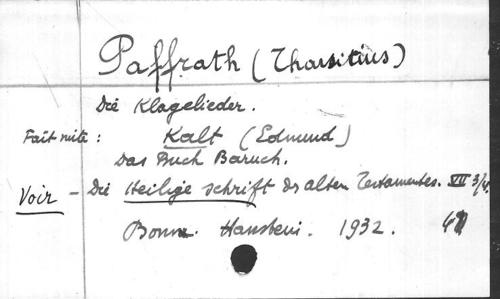 Paffrath (Tharsitius)
Die Klagelieder.
Fait suite : Kalt (Edmund)
Das Buch Baruch.
Voir - Die Heilige schrift des alten Testamentes. VII 3/4.
Bonn. Hanstein. 1932.